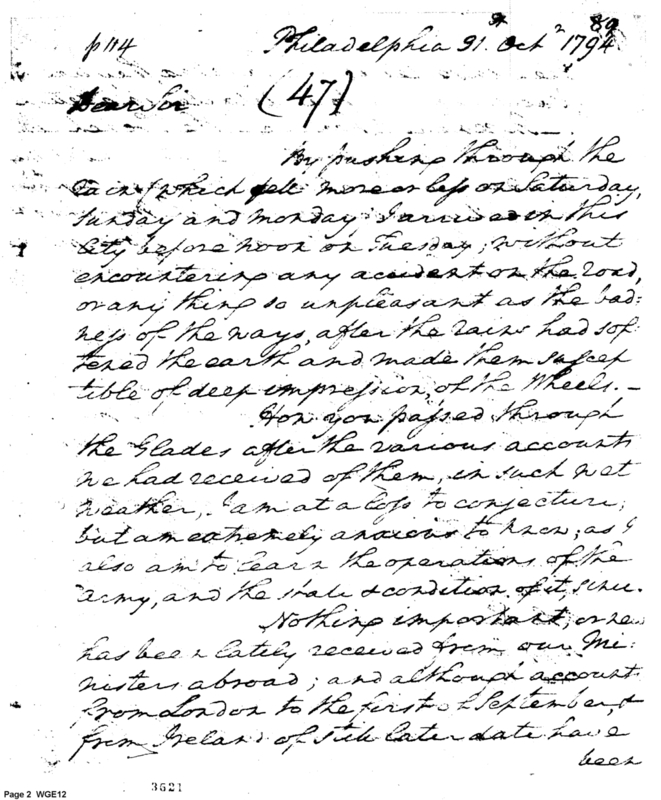 p 114 Philadelphia 31st Octr 1794.
89
Dear Sir
(47)
By pushing through the
rain (which fell more or less on Saturday,
Sunday and Monday) I arrived in this
City before noon on Tuesday; without
encountering any accident on the road,
or any thing so unpleasant as the bad:
ness of the ways, after the rains had sof
tened the earth and made them suscep
tible of deep impression, of the Wheels.—
How you passed through
the Glades after the various accounts
we had received of them, in such wet
weather, I am at a loss to conjecture;
but am extremely anxious to know; as I
also am to learn the operations of the
army, and the state & condition of it, since.
Nothing important, or new
has been lately received from our Mi:
nisters abroad; and although accounts
from London to the first of September, &
from Ireland of still later date have
been
3621
Page 2 WGE12